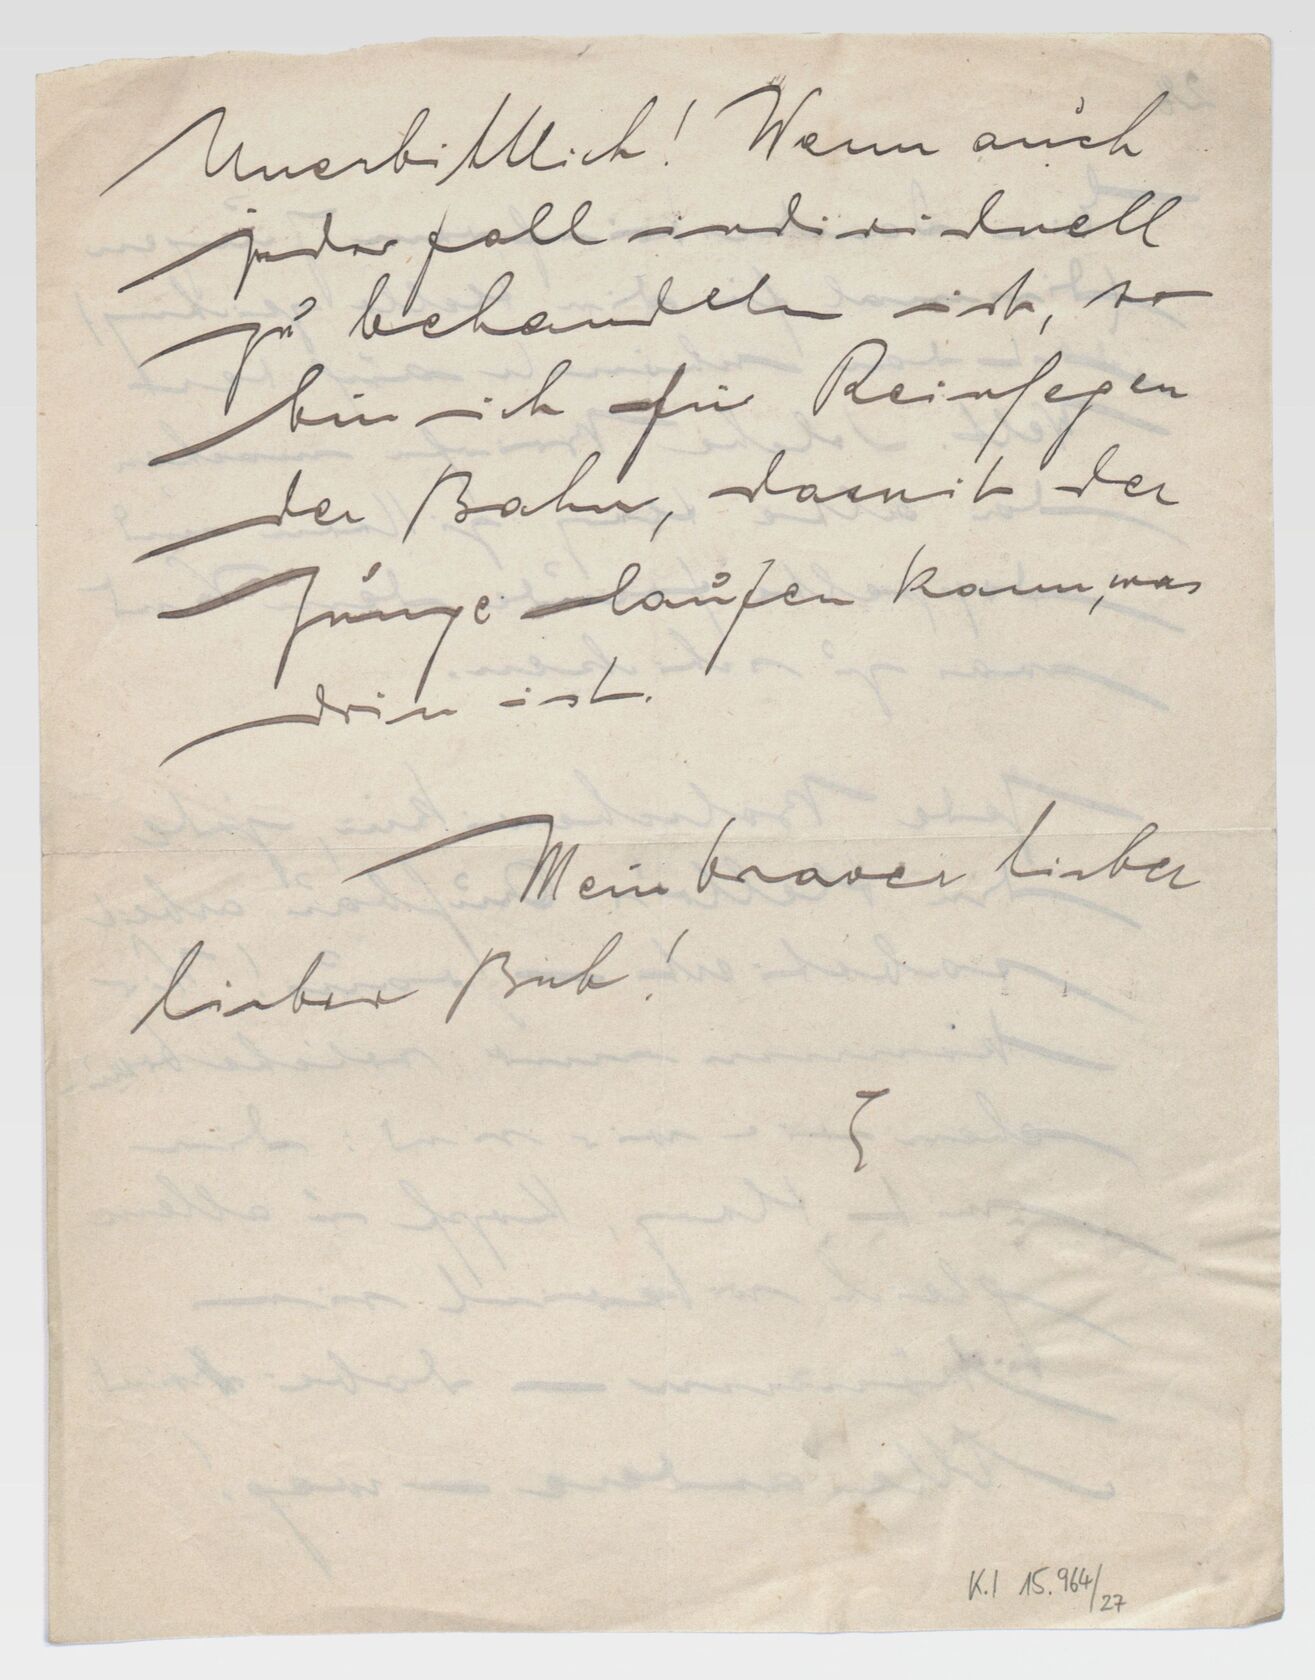 Unerbittlich! Wenn auch
jeder fall individuell
zu behandeln ist, so
bin ich für Reinfegen
der Bahn, damit der
Junge laufen kann, was
drin ist.
Mein braver lieber
lieber Bub!
K.I 15.964/27